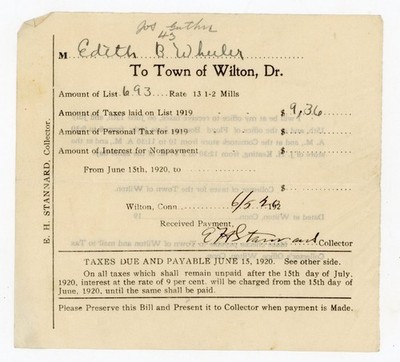 43
M Edith B Wheeler
To Town of Wilton, Dr.
Amount of List 693 Rate 13 1-2 Mills
Amount of Taxes laid on List 1919 $ 9,36
Amount of Personal Tax for 1919 $
Amount of Interest for Nonpayment $
From June 15th, 1920, to
$
Wilton, Conn. 6/5 20 192
Received Payment,
E H Stannard Collector
E. H. STANNARD, Collector.
TAXES DUE AND PAYABLE JUNE 15, 1920. See other side.
On all taxes which shall remain unpaid after the 15th day of July,
1920, interest at the rate of 9 per cent. will be charged from the 15th day
of June, 1920, until the same shall be paid.
Please Preserve this Bill and Present it to Collector when payment is Made.